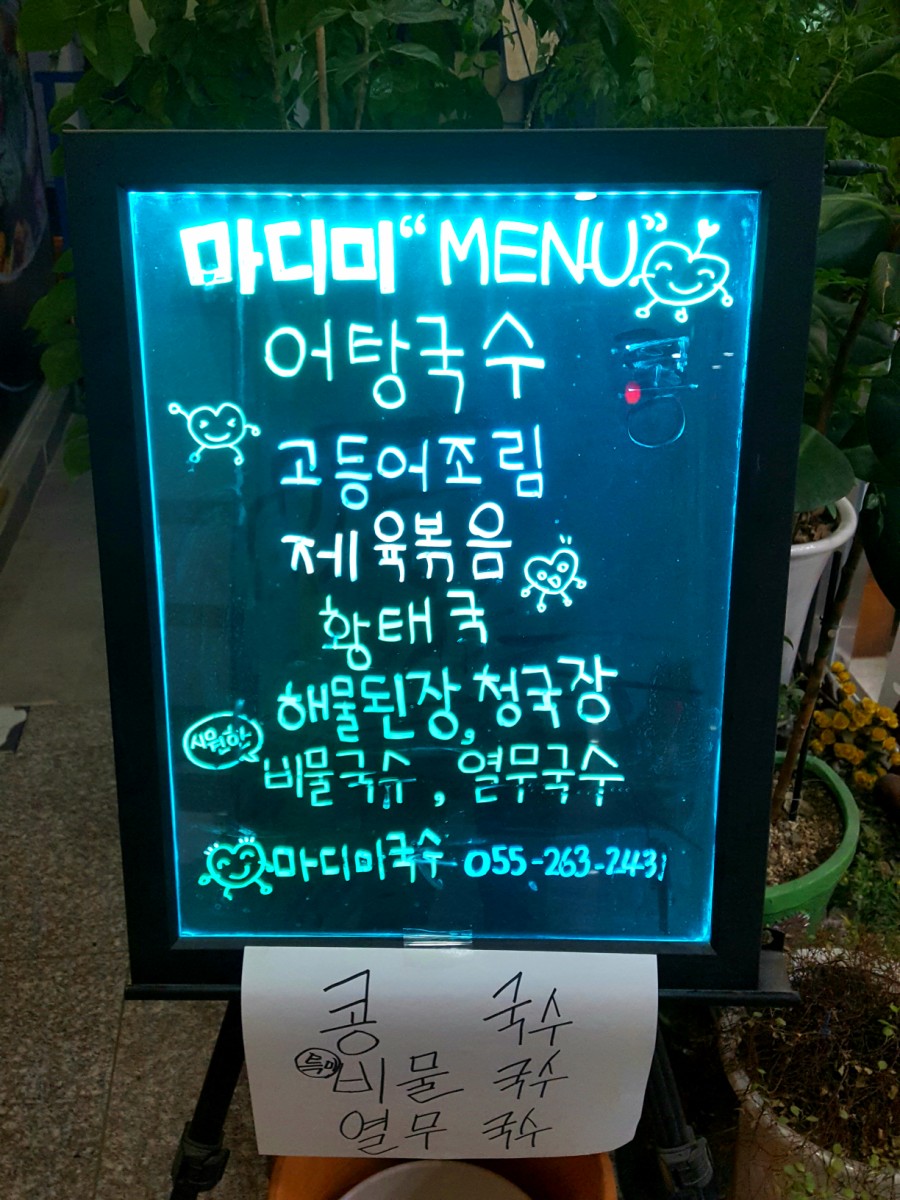 마디미 “MENU”
어탕국수
고등어조림
제육볶음
황태국
해물된장, 청국장
시원한
비물국슈, 열무국수
마디미국수 055-263-2431
콩 국수
특미 비물 국수
열무 국수